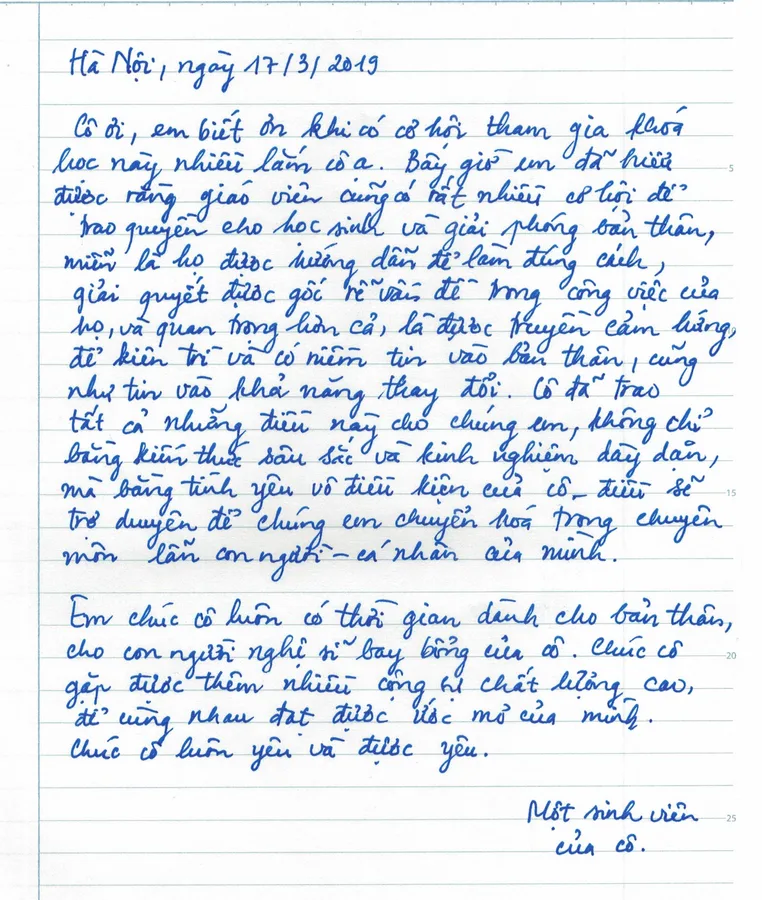 Hà Nội, ngày 17/3/2019
Cô ơi, em biết ơn khi có cơ hội tham gia khoá
học này nhiều lắm cô ạ. Bây giờ em đã hiểu
được rằng giáo viên cũng có rất nhiều cơ hội để
trao quyền cho học sinh và giải phóng bản thân,
miễn là họ được hướng dẫn để làm đúng cách,
giải quyết được gốc rễ vấn đề trong công việc của
họ, và quan trọng hơn cả, là được truyền cảm hứng,
để kiên trì và có niềm tin vào bản thân, cũng
như tin vào khả năng thay đổi. Cô đã trao
tất cả những điều này cho chúng em, không chỉ
bằng kiến thức sâu sắc và kinh nghiệm dày dạn,
mà bằng tình yêu vô điều kiện của cô – điều sẽ
trợ duyên để chúng em chuyển hoá trong chuyên
môn lẫn con người – cá nhân của mình.
Em chúc cô luôn có thời gian dành cho bản thân,
cho con người nghệ sĩ bay bổng của cô. Chúc cô
gặp được thêm nhiều cộng sự chất lượng cao,
để cùng nhau đạt được ước mơ của mình.
Chúc cô luôn yêu và được yêu.
Một sinh viên
của cô.
5
15
20
25